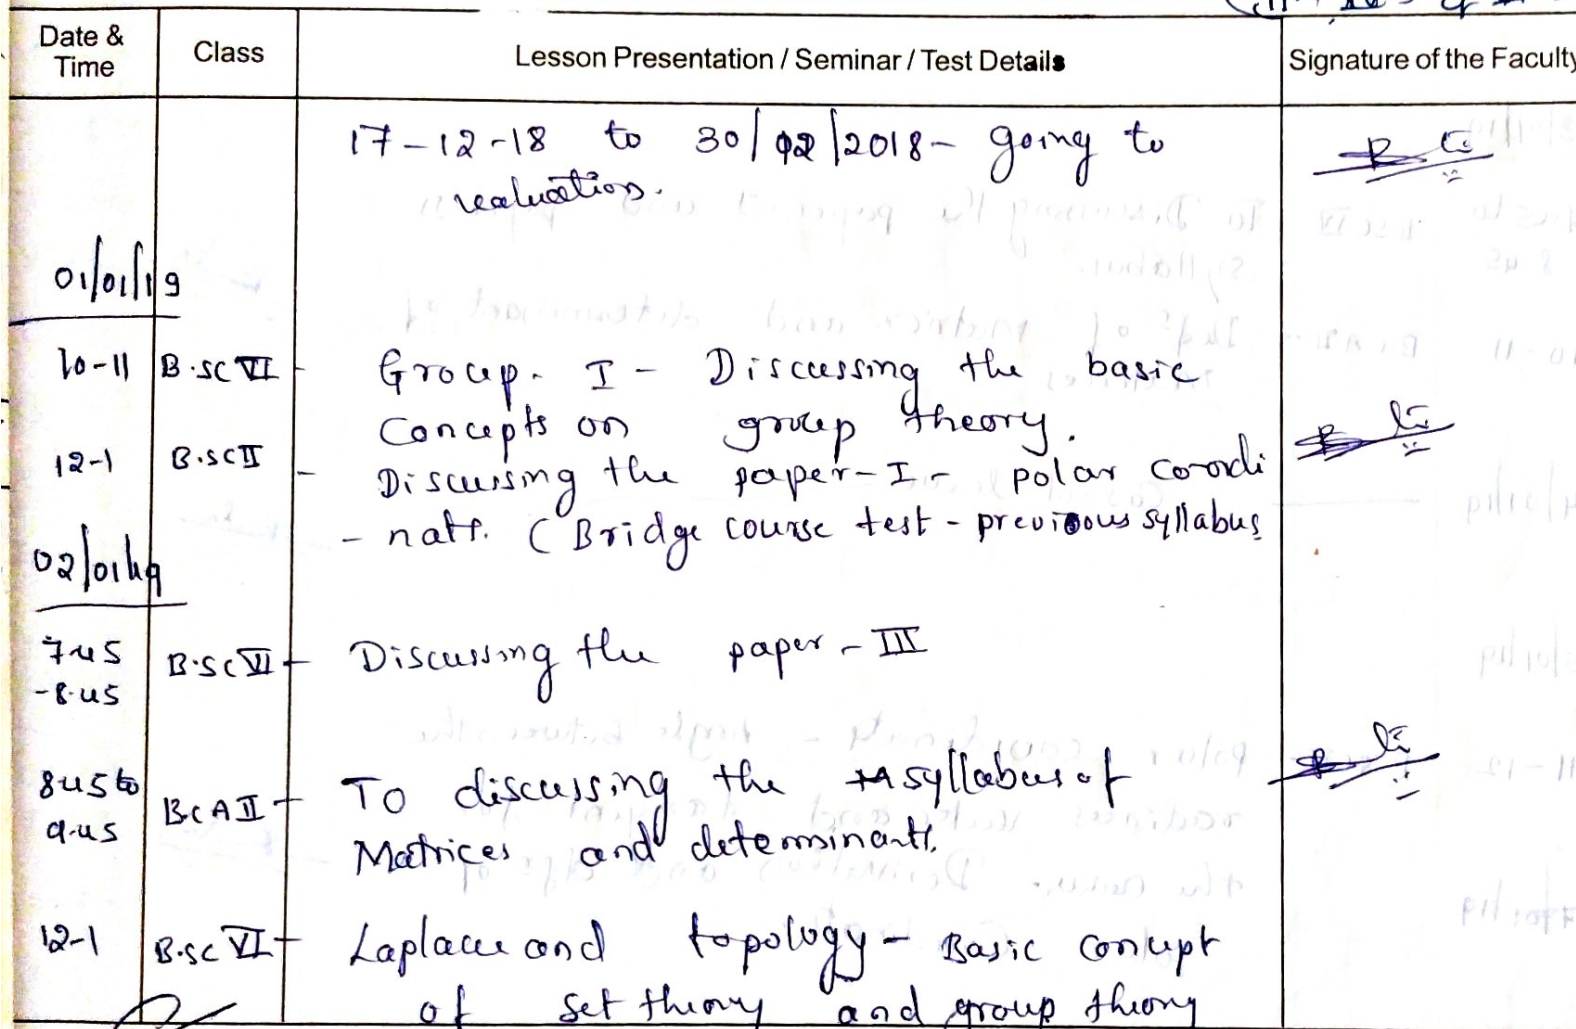 Date & Time Class Lesson Presentation / Seminar / Test Details Signature of the Faculty
17-12-18 to 30/12/2018 - going to
valuation.
01/01/19
10-11 B.SC VI - Group. I - Discussing the basic
Concepts on group theory.
12-1 B.SC II - Discussing the paper-I - polar coordi
- nats. (Bridge course test - previous syllabus
02/01/19
7 45 -8.45 B.SC VI - Discussing the paper - III
8 45 to 9.45 BCA II - To discussing the syllabus of
Matrices and determinants.
12-1 B.SC VI - Laplace and topology - Basic concept
of set theory and group theory